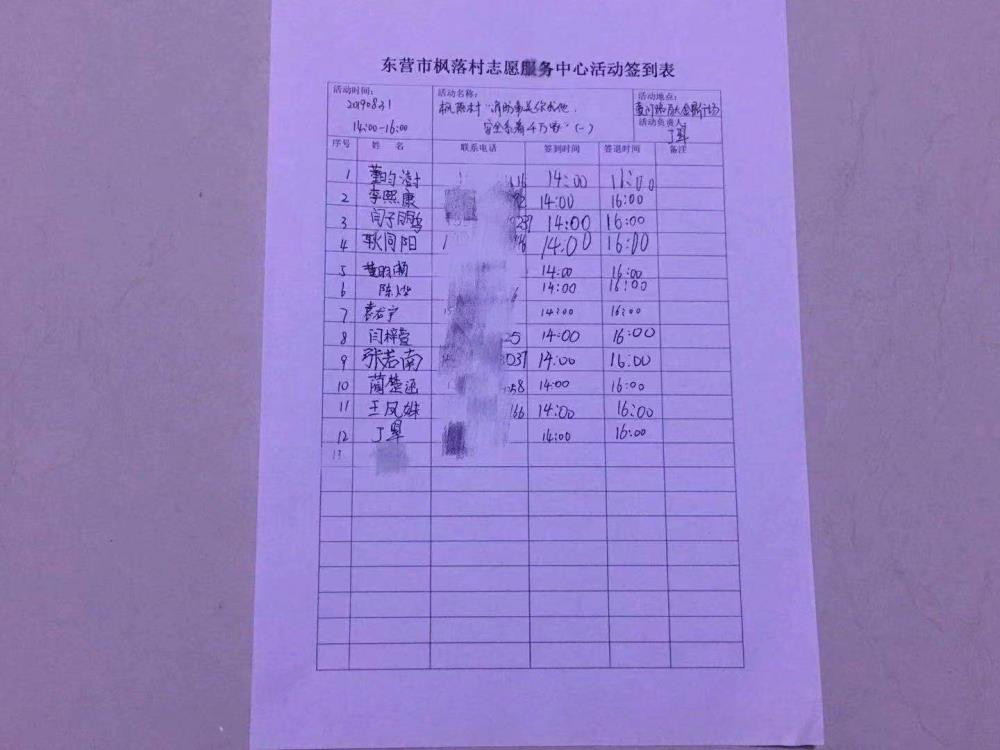 东营市枫落村志愿服务中心活动签到表
活动时间: 活动名称: 活动地点:
20190831 枫落村“消防事关你我他,
14:00-16:00 安全系着千万家”(一) 活动负责人:
丁翠
序号 姓名 联系电话 签到时间 签退时间 备注
1 616 14:00 16:00
2 李熙康 92 14:00 16:00
3 闫子鹏 237 14:00 16:00
4 耿向阳 1 96 14:00 16:00
5 14:00 16:00
6 陈烨 6 14:00 16:00
7 袁宁 15 14:00 16:00
8 闫梓萱 25 14:00 16:00
9 张若南 037 14:00 16:00
10 蔺楚涵 058 14:00 16:00
11 王凤姝 166 14:00 16:00
12 丁翠 14:00 16:00
13